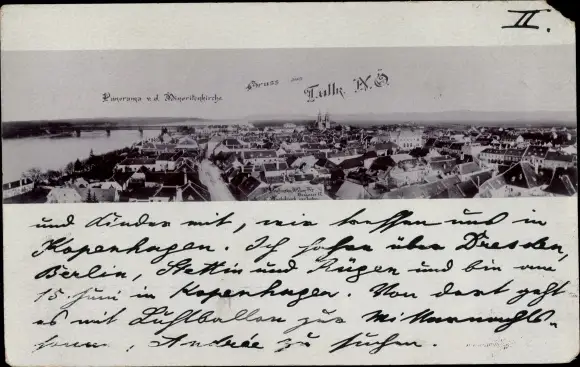 II.
Gruss aus
Tulln N.Ö
Panorama v. d. Minoritenkirche
und Kinder mit, wir treffen uns in
Kopenhagen. Ich fahre über Dresden,
Berlin, Stettin und Rügen und bin am
15 Juni in Kopenhagen. Von dort geht
es mit Luftballon zur Mitternachts-
sonne, Andrée zu suchen.